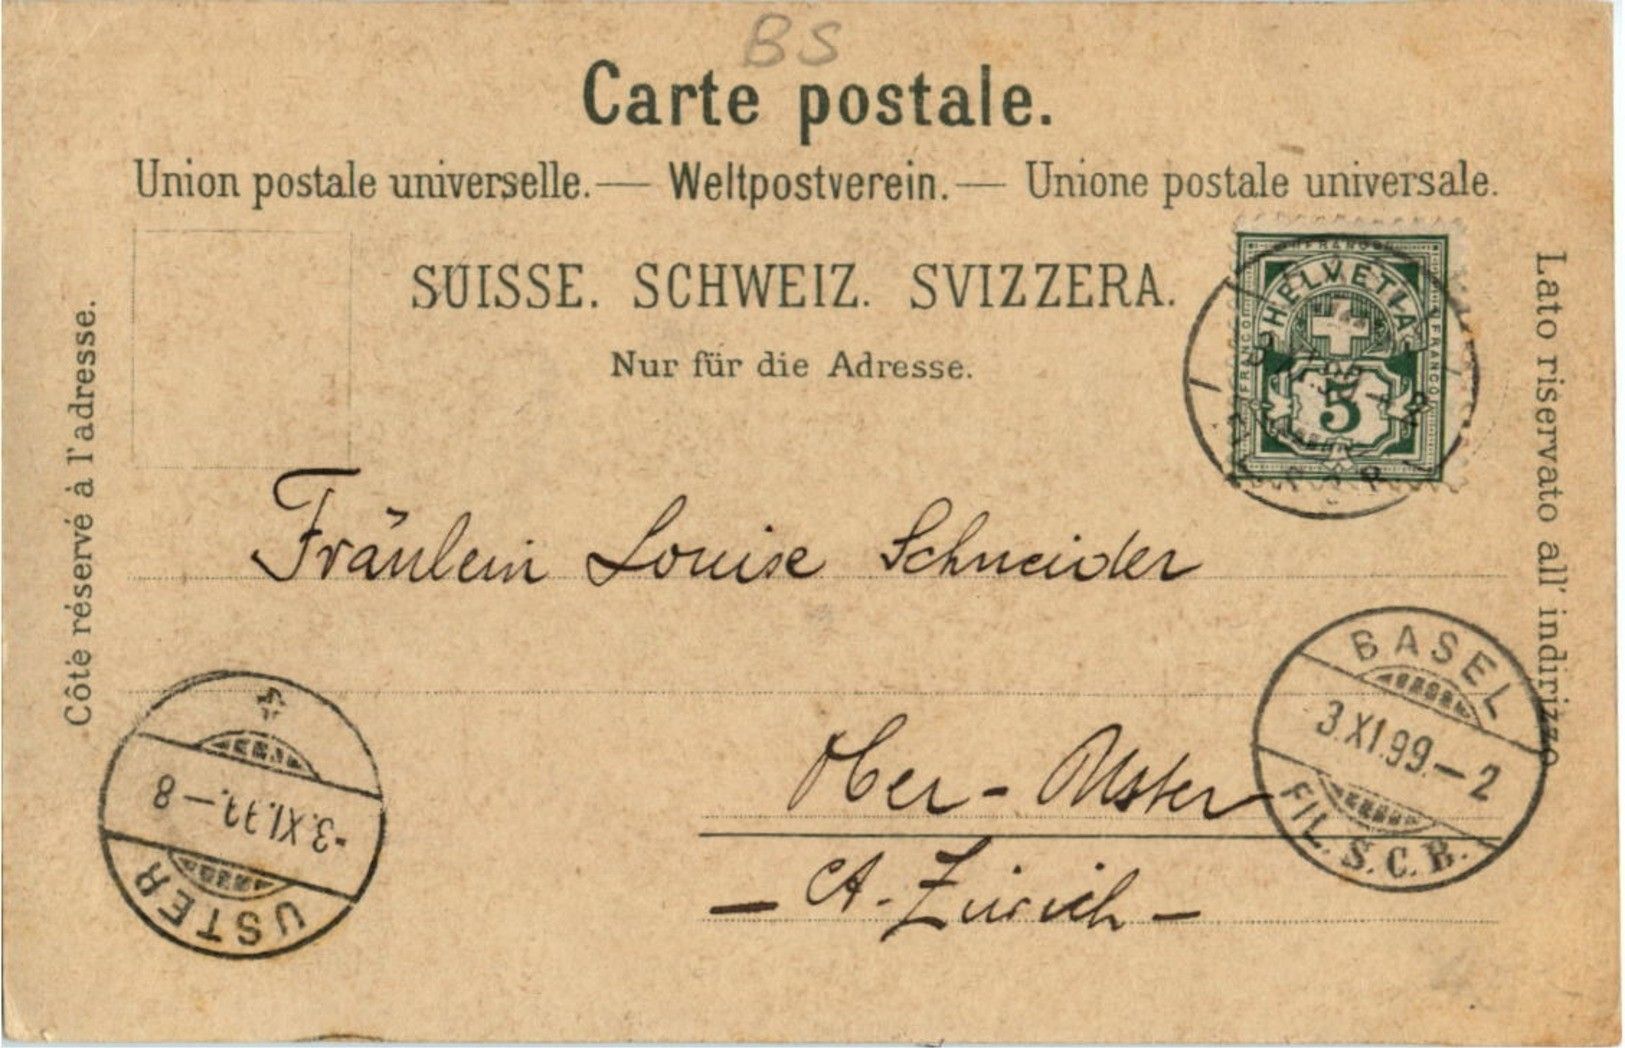 BS
Carte postale.
Union postale universelle. — Weltpostverein. — Unione postale universale.
SUISSE. SCHWEIZ. SVIZZERA.
Nur für die Adresse.
Côté réservé à l'adresse.
Lato riservato all' indirizzo
FRANCO
HELVETIA
FRANCO
FRANCO
5
Fräulein Louise Schneider
Ober-Uster
- Ct. Zürich -
BASEL
3.XI.99.–2
FIL. S.C.B.
-3.XI.99.–8
USTER